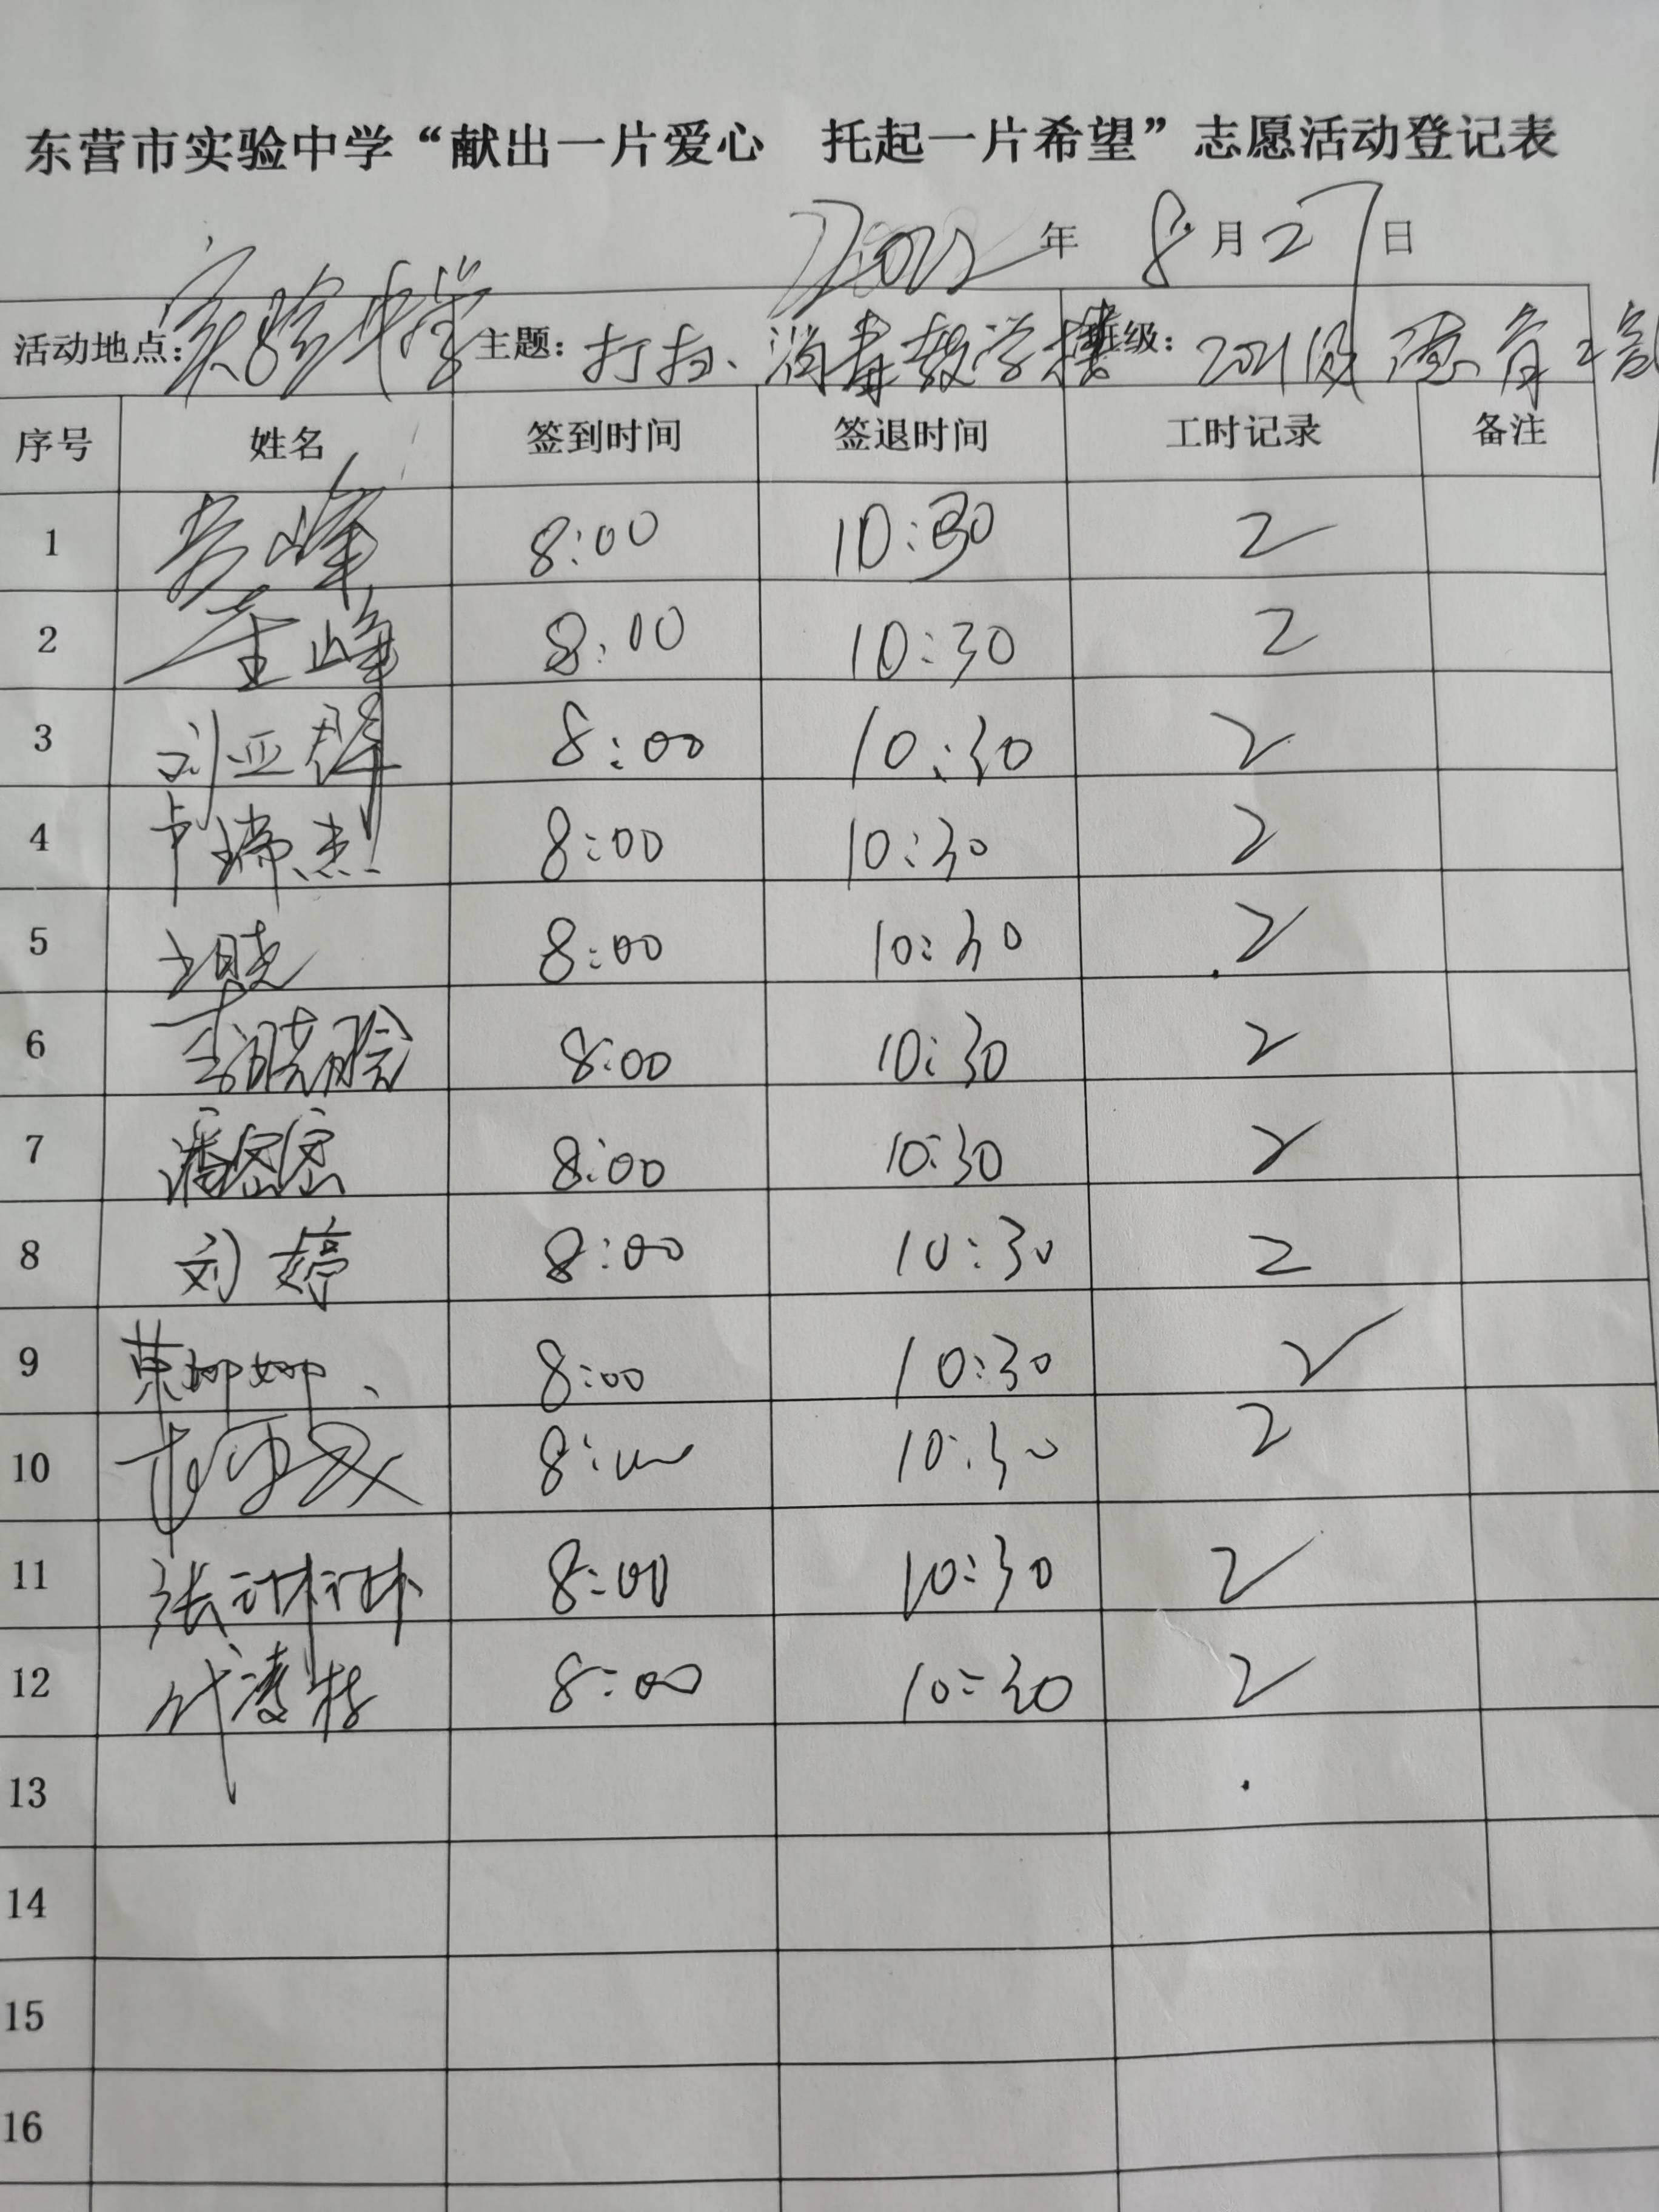 东营市实验中学“献出一片爱心 托起一片希望”志愿活动登记表
2022年 8月27日
活动地点：实验中学 主题：打扫、消毒教学楼 班级：2021级德育
序号 姓名 签到时间 签退时间 工时记录 备注
1 峰 8:00 10:30 2
2 董峰 8:00 10:30 2
3 刘亚群 8:00 10:30 2
4 卢瑞杰 8:00 10:30 2
5 晓 8:00 10:30 2
6 李晓 8:00 10:30 2
7 潘密密 8:00 10:30 2
8 刘婷 8:00 10:30 2
9 8:00 10:30 2
10 8:00 10:30 2
11 张 8:00 10:30 2
12 8:00 10:30 2
13
14
15
16